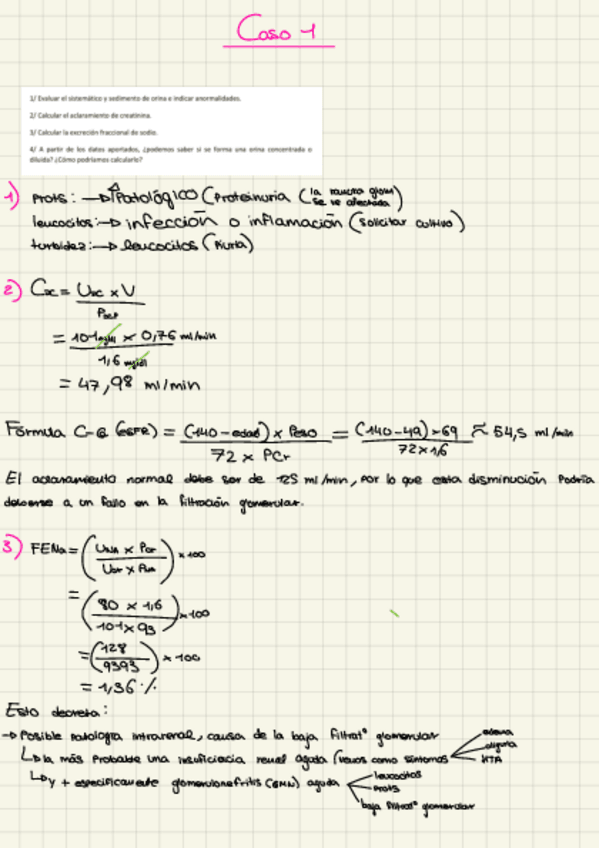 Caso 1
1/ Evaluar el sistemático y sedimento de orina e indicar anormalidades.
2/ Calcular el aclaramiento de creatinina.
3/ Calcular la excreción fraccional de sodio.
4/ A partir de los datos aportados, ¿podemos saber si se forma una orina concentrada o
diluida? ¿Cómo podríamos calcularlo?
1) Prots: → ↑Patológico (Proteinuria (la glom
se ve afectada)
leucocitos: → infección o inflamación (solicitar cultivo)
turbidez: → leucocitos (Piuria)
2) Ccr = Ucr x V
Pcr
= 101 x 0,76 ml/min
1,6 mg/dl
= 47,98 ml/min
Fórmula C-G (eGFR) = (140 - edad) x Peso = (140-49) x 69 ≈ 54,5 ml/min
72 x PCr 72 x 1,6
El aclaramiento normal debe ser de 125 ml/min, por lo que esta disminución podría
deberse a un fallo en la filtración glomerular.
3) FENa = (UNa x Pcr) x 100
Ucr x PNa
=
(80 x 1,6) x 100
101 x 93
= (128) x 100
9393
= 1,36 %
Esto decreta:
→ Posible patología intrarenal, causa de la baja filtratº glomerular
↳ la más probable una insuficiacia renal aguda (vemos como síntomas edema
oliguria
HTA
↳ y + especificamente glomerulonefritis (GMN) aguda leucocitos
prots
baja filtratº glomerular